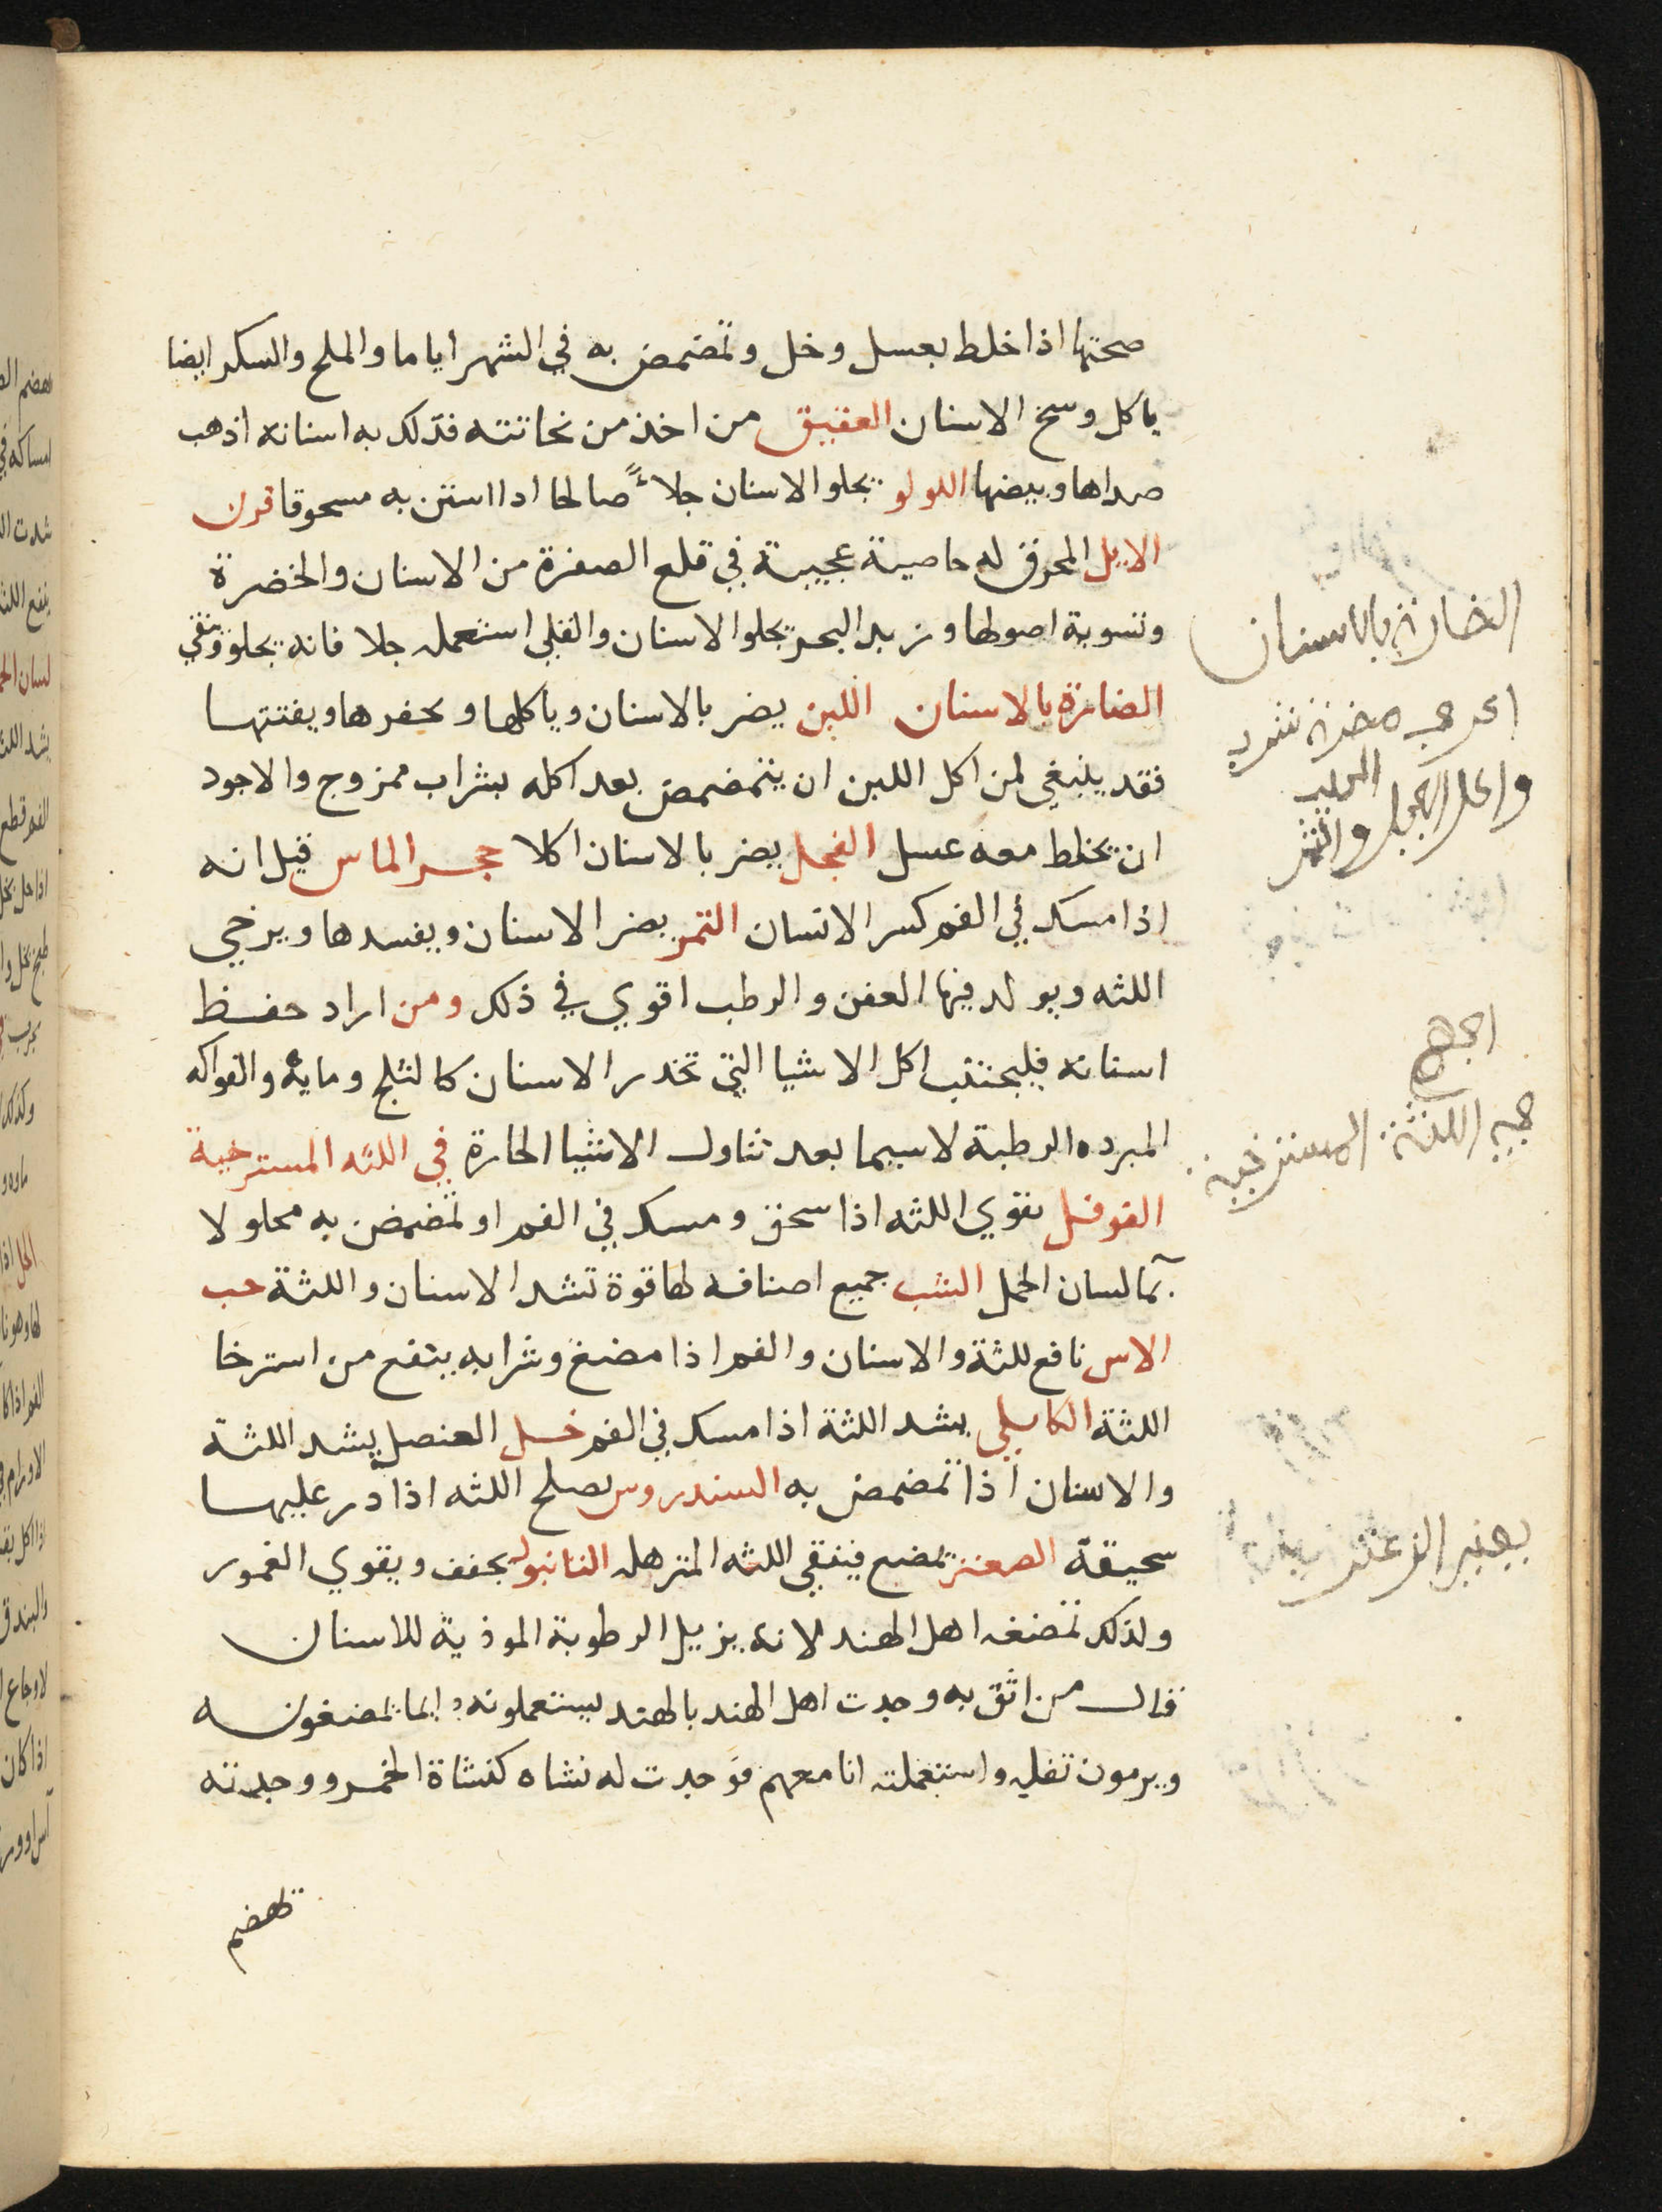 صحتها اذا خلط بعسل وخل وتمضمض به في الشهر اياما والملح والسكر ايضا
ياكل وسخ الاسنان العقيق من اخذ من نحاتته فدلك به اسنانه اذهب
صداها وبيضها اللولو يجلو الاسنان جلاءً صالحا اذا استن به مسحوقا قرن
الايل المحرق له خاصية عجيبة في قلع الصفرة من الاسنان والخضرة
وتسوية اصولها وزبد البحر يجلو الاسنان والقلي استعمله جلا فانه يجلو وينقي
الضارة بالاسنان اللبن يضر بالاسنان وياكلها ويحفرها ويفتتها
فقد ينبغي لمن اكل اللبن ان يتمضمض بعد اكله بشراب ممزوج والاجود
ان يخلط معه عسل الفجل يضر بالاسنان اكلا حجر الماس قيل انه
اذا مسك في الفم كسر الاسنان التمر يضر الاسنان ويفسدها ويرخي
اللثه ويولد فيها العفن والرطب اقوي في ذلك ومن اراد حفظ
اسنانه فليجتنب اكل الاشيا التي تخدر الاسنان كالثلج ومايه والفواكه
المبرده الرطبة لاسيما بعد تناول الاشيا الحارة في اللثه المسترخية
الفوفل يقوي اللثه اذا سحق ومسك في الفم او تمضمض به محلولا
بما لسان الحمل الشب جميع اصنافه لها قوة تشد الاسنان واللثة حب
الاس نافع للثة والاسنان والفم اذا مضغ وشرابه ينفع من استرخا
اللثة الكابلي يشد اللثة اذا مسك في الفم خل العنصل يشد اللثة
والاسنان اذا تمضمض به السندروس يصلح اللثه اذا در عليها
سحيقة الصعتر يمضع فينقي اللثه المترهله التانبول يجفف ويقوي الغمور
ولذلك تمضغه اهل الهند لانه يزيل الرطوبة الموذية للاسنان
قال من اثق به وجدت اهل الهند بالهند يستعملونه دايما يمضغونه
ويرمون تفله واستعملته انا معهم فوجدت له نشاه كنشاة الخمر ووجدته
تهضم
الضارة بالاسنان
اللثة المسترخية